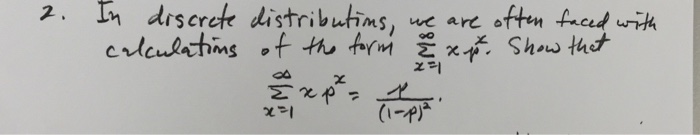 2. In discrete distributions, we are often faced with
calculations of the form ∞ Σ x=1 x p^x. Show that
∞ Σ x=1 x p^x = p/(1-p)².